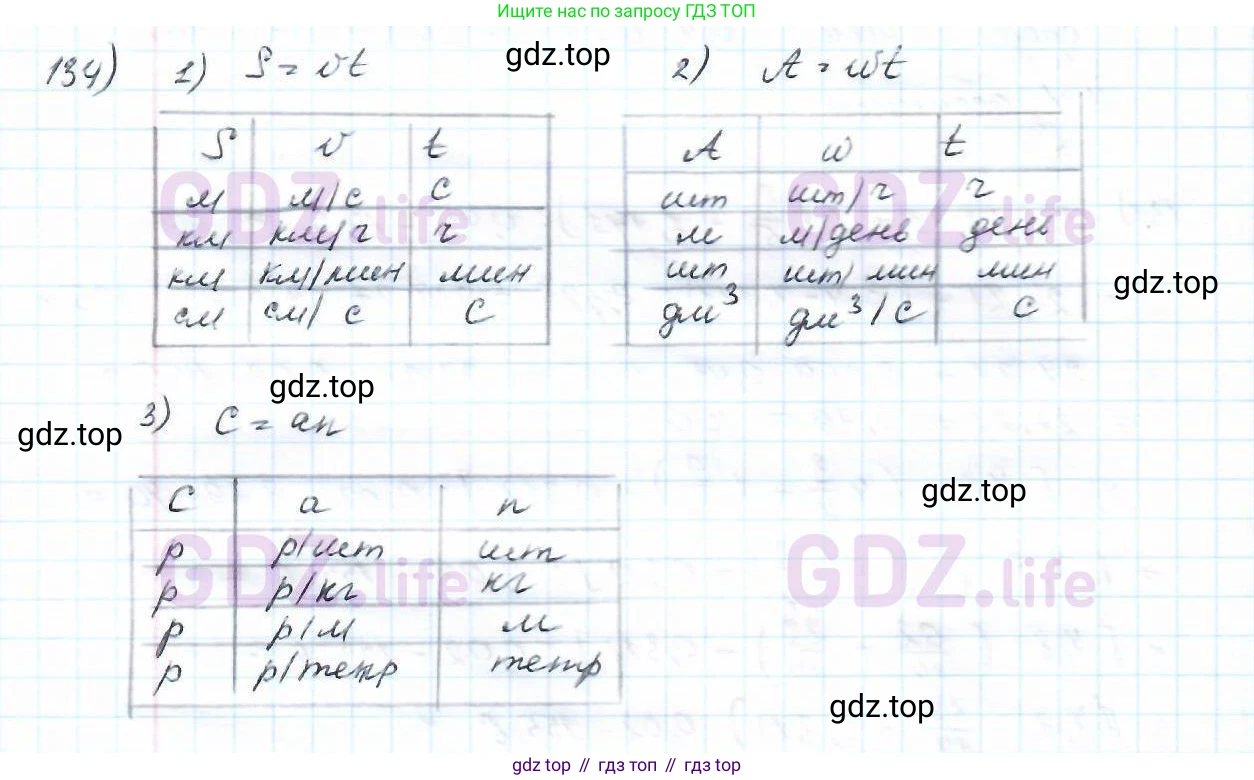 Ищите нас по запросу ГДЗ ТОП
134) 1) S = vt gdz.top 2) A = wt
S v t A w t
м м/с с шт шт/ч ч
км км/ч ч м м/день день
км км/мин мин шт шт/мин мин
gdz.top
см см/с с дм³ дм³/с с
GDZ.life GDZ.life
gdz.top
gdz.top 3) C = an
gdz.top
C a n
р р/шт шт
р р/кг кг
р р/м м
р р/тетр тетр
GDZ.life GDZ.life
gdz.top
gdz.top // гдз топ // gdz.top